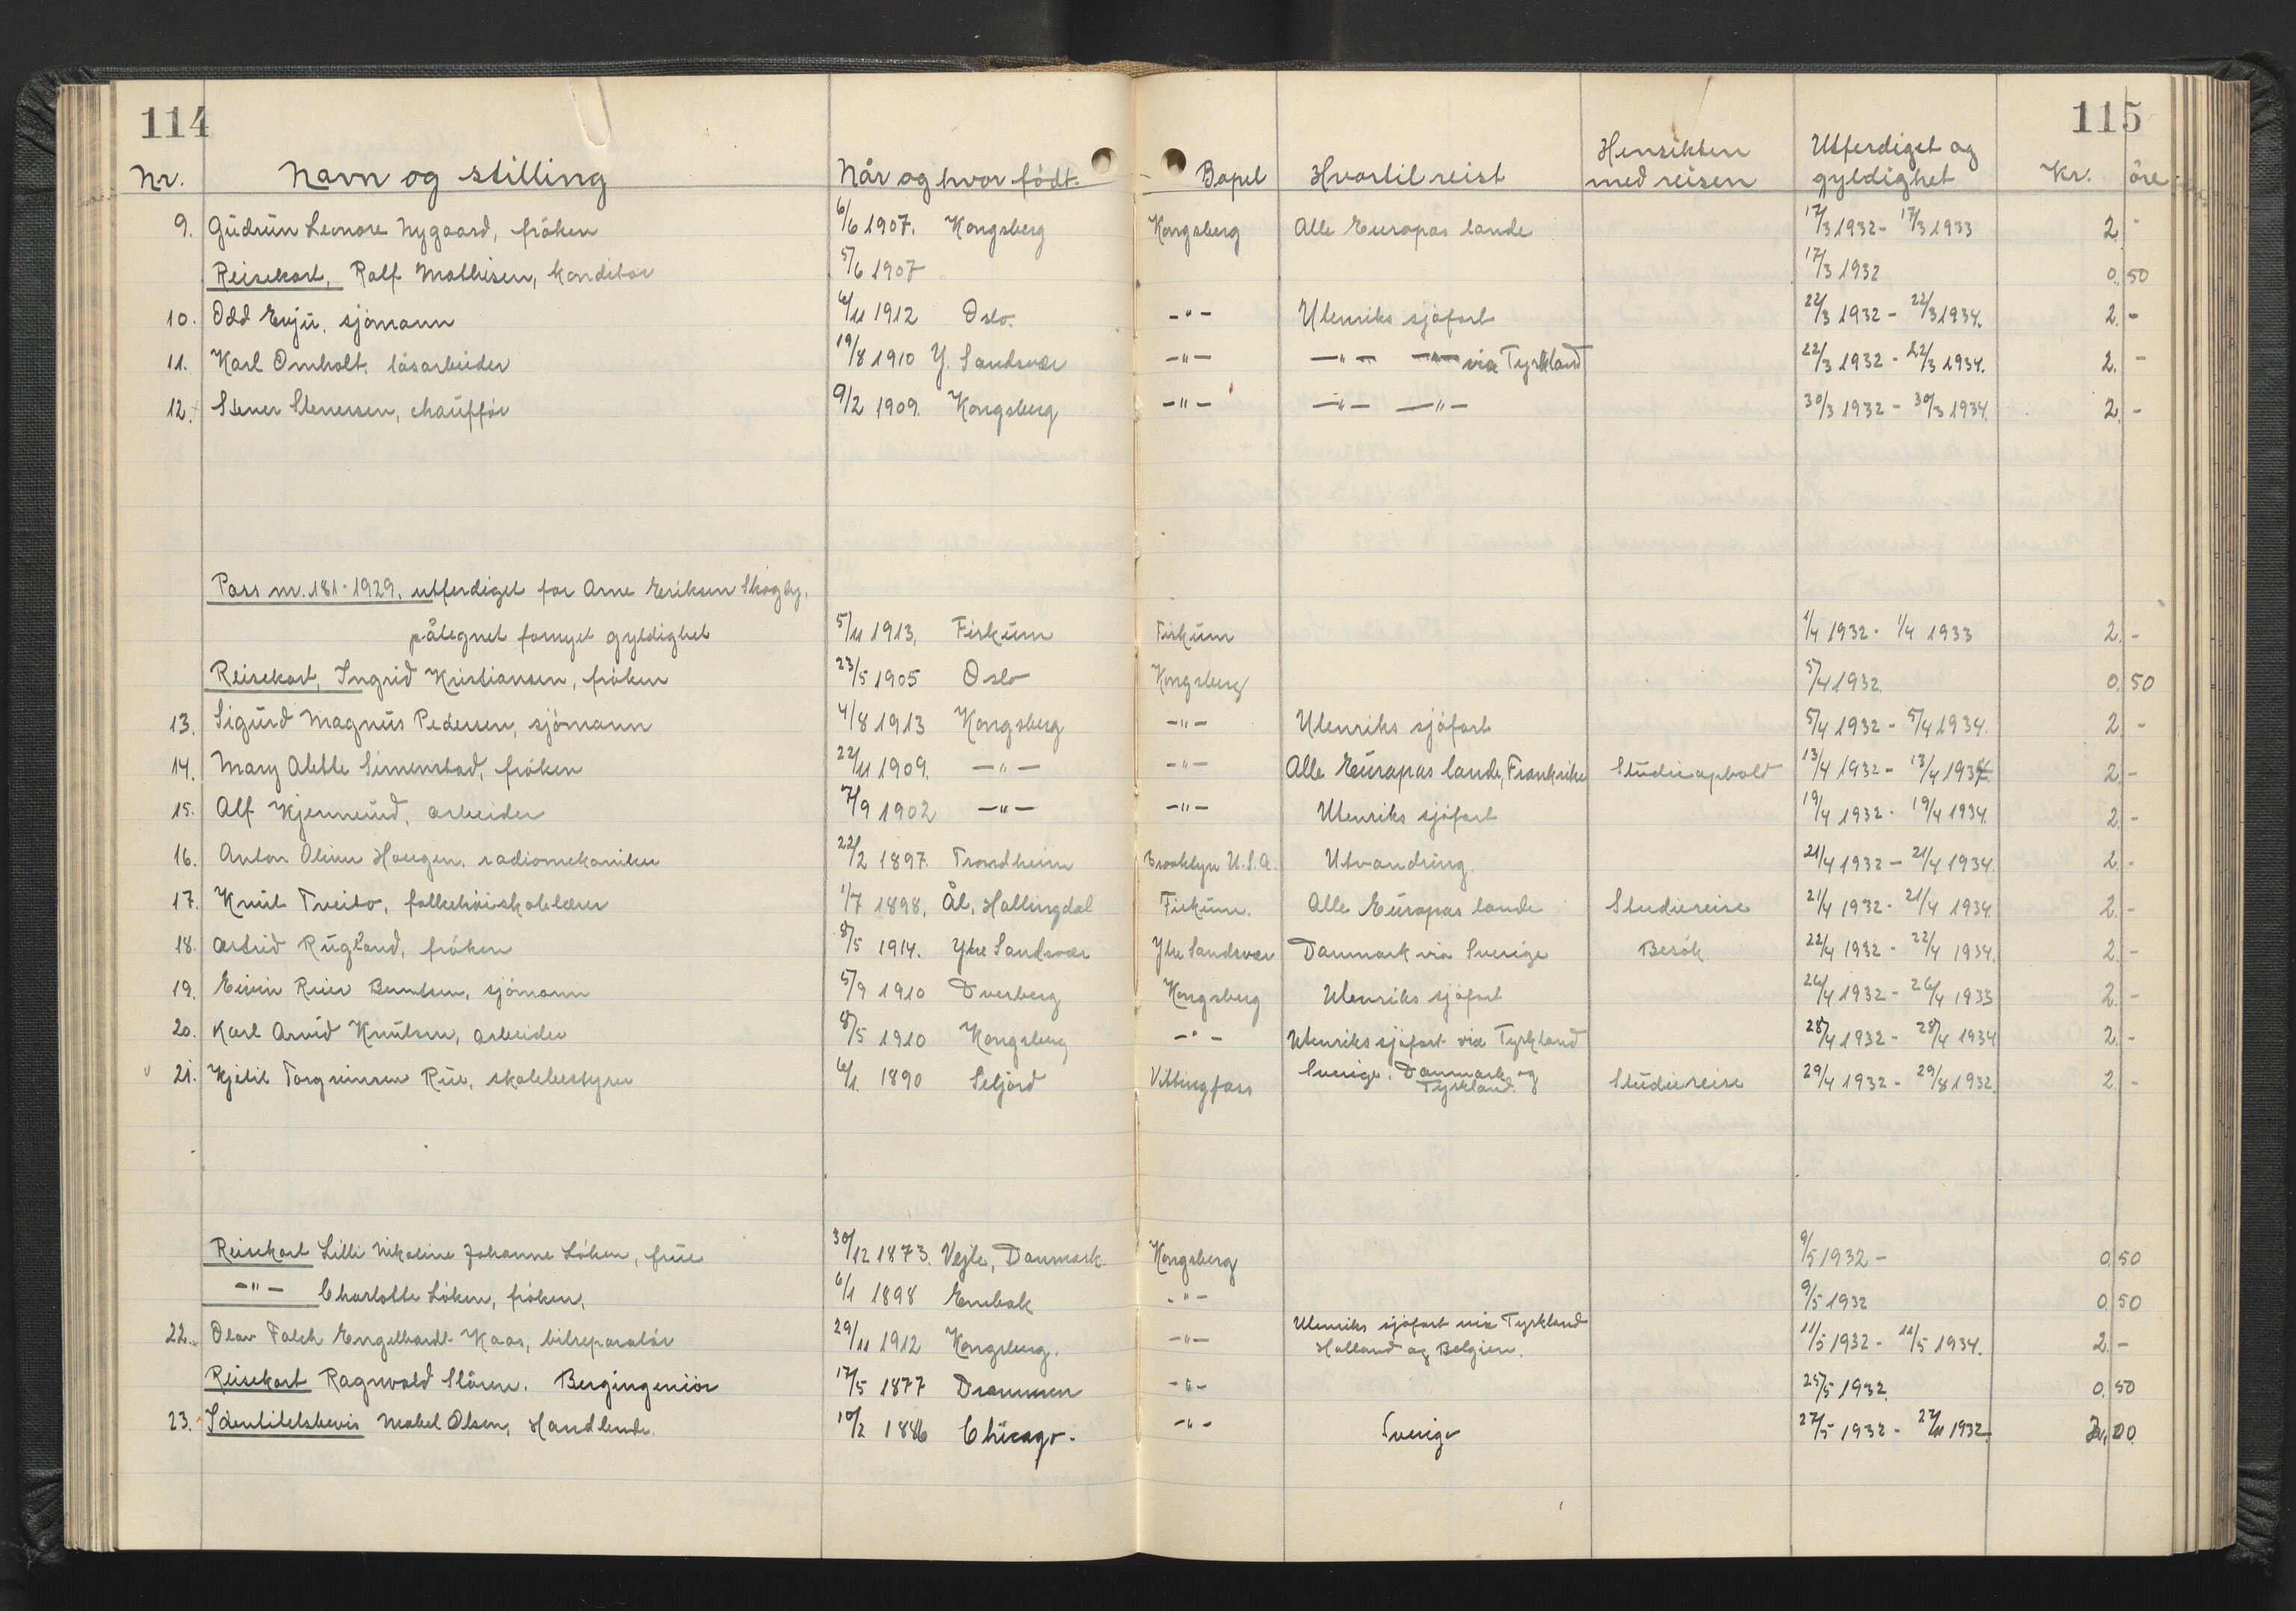 114
115
Nr. Navn og stilling Når og hvor født. Bopel Hvortil reist Hensikten med reisen Utferdiget og gyldighet Kr. öre
9. Gudrun Leonore Nygaard, fröken 6/6 1907. Kongsberg Kongsberg Alle Europas lande 17/3 1932 - 17/3 1933 2 -
Reisekort, Rolf Mathisen, konditor 5/6 1907 17/3 1932 0. 50
10. Odd Evju, sjömann 6/11 1912 Oslo. -"- Utenriks sjöfart 22/3 1932 - 22/3 1934. 2. -
11. Karl Omholt, låsarbeider 19/8 1910 Y. Sandsvær -"- -"- -"- via Tyskland 22/3 1932 - 22/3 1934. 2. -
12. Stener Stenersen, chaufför 9/2 1909. Kongsberg -"- -"- -"- 30/3 1932 - 30/3 1934. 2. -
Pass nr. 181 - 1929, utferdiget for Arne Eriksen Skogly,
påtegnet fornyet gyldighet 5/11 1913, Fiskum Fiskum 1/4 1932 - 1/4 1933 2. -
Reisekort, Ingrid Kristiansen, fröken 23/5 1905 Oslo Kongsberg 5/4 1932. 0. 50
13. Sigurd Magnus Pedersen, sjömann 4/8 1913 Kongsberg -"- Utenriks sjöfart 5/4 1932 - 5/4 1934. 2. -
14. Mary Alette Simenstad, fröken 22/11 1909. -"- -"- Alle Europas lande, Frankrike Studieophold 13/4 1932 - 13/4 1934. 2. -
15. Alf Kjennerud, arbeider 7/9 1902 -"- -"- Utenriks sjöfart 19/4 1932 - 19/4 1934. 2. -
16. Anton Oliver Haugen, radiomekaniker 22/2 1897. Trondheim Brooklyn U.S.A. Utvandring. 21/4 1932 - 21/4 1934. 2. -
17. Knut Tveito, folkehöiskolelærer 1/7 1898, Ål, Hallingdal Fiskum. Alle Europas lande Studiereise 21/4 1932 - 21/4 1934. 2. -
18. Astrid Rugland, fröken 8/5 1914. Ytre Sandsvær Ytre Sandsvær Danmark via Sverige Besök 22/4 1932 - 22/4 1934. 2. -
19. Eivin Berntsen, sjömann 5/9 1910 Dverberg Kongsberg Utenriks sjöfart 26/4 1932 - 26/4 1933 2. -
20. Karl Arvid Knutsen, arbeider 8/5 1910 Kongsberg -"- Utenriks sjöfart via Tyskland 28/4 1932 - 28/4 1934 2. -
21. Kjetil Torgrimsen Rue, skolebestyrer 6/1. 1890 Seljord Vittingfoss Sverige, Danmark og Tyskland. Studiereise 29/4 1932 - 29/8 1932. 2. -
Reisekort Lilli Nikoline Johanne Löken, frue 30/12 1873. Vejle, Danmark. Kongsberg 9/5 1932 - 0. 50
-"- Charlotte Löken, fröken, 6/1 1898 Enebak -"- 9/5 1932 0. 50
22. Olav Falch Engelhardt Kaas, bilreparatör 29/11 1912 Kongsberg. -"- Utenriks sjöfart via Tyskland Holland og Belgien. 11/5 1932 - 11/5 1934. 2. -
Reisekort Ragnvald Stören. Bergingeniör 17/5 1877 Drammen -"- 25/5 1932. 0. 50
23. Identitetsbevis Mabel Olsen, Handlende. 10/2 1886 Chicago. -"- Sverige 27/5 1932 - 27/11 1932. 2, 00